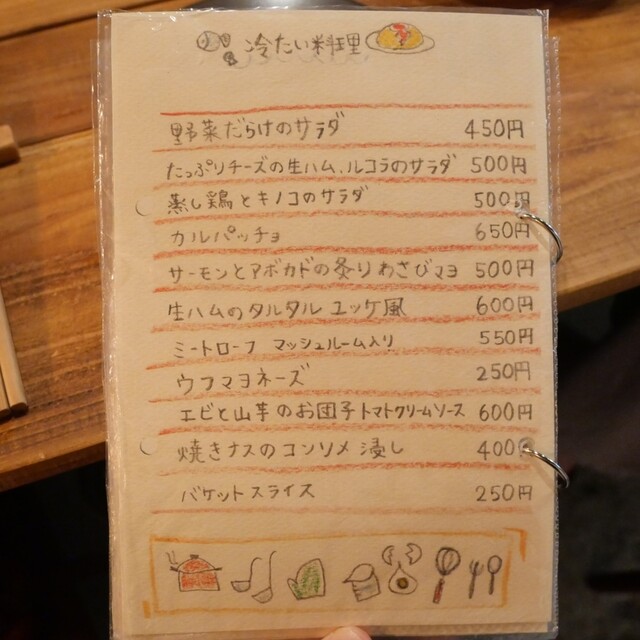 冷たい料理
野菜だらけのサラダ 450円
たっぷりチーズの生ハム、ルコラのサラダ 500円
蒸し鶏とキノコのサラダ 500円
カルパッチョ 650円
サーモンとアボカドの炙りわさびマヨ 500円
生ハムのタルタル ユッケ風 600円
ミートローフ マッシュルーム入り 550円
ウフマヨネーズ 250円
エビと山芋のお団子トマトクリームソース 600円
焼きナスのコンソメ浸し 400円
バケットスライス 250円